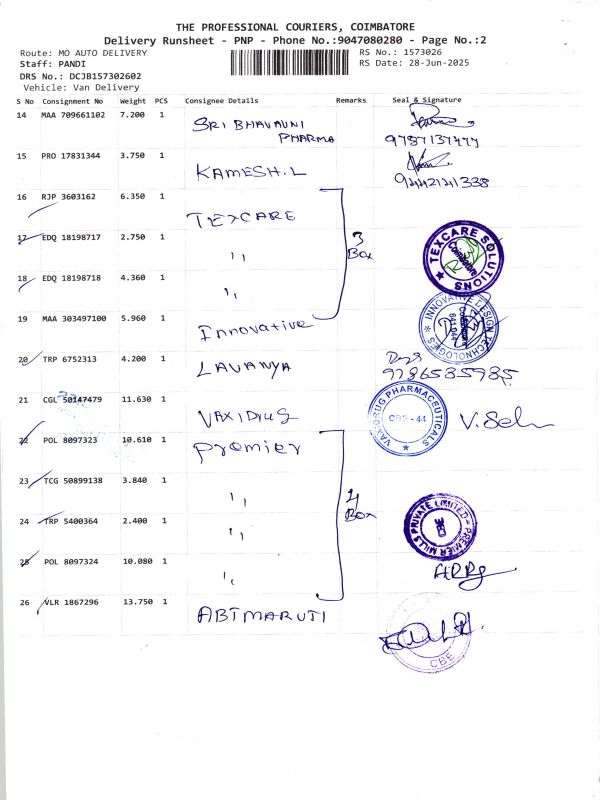 THE PROFESSIONAL COURIERS, COIMBATORE
Delivery Runsheet - PNP - Phone No.:9047080280 - Page No.:2
Route: MO AUTO DELIVERY RS No.: 1573026
Staff: PANDI RS Date: 28-Jun-2025
DRS No.: DCJB157302602
Vehicle: Van Delivery
S No Consignment No Weight PCS Consignee Details Remarks Seal & Signature
14 MAA 709661102 7.200 1 SRI BHAVAUNI
PHARMA
15 PRO 17831344 3.750 1 KAMESH.L 9442141338
16 RJP 3603162 6.350 1 TEXCARE
17 EDQ 18198717 2.750 1 ,, 3 Box TEXCARE SOLUTIONS Coimbatore
18 EDQ 18198718 4.360 1 ,,
19 MAA 303497100 5.960 1 Innovative INNOVATIVE DESIGN TECHNOLOGIES
20 TRP 6752313 4.200 1 LAVANYA 9786535985
21 CGL 50147479 11.630 1 VAXIDRUG VAXIDRUG PHARMACEUTICALS CBS-44 V.Sel
22 POL 8097323 10.610 1 Promier
23 TCG 50899138 3.840 1 ,, 4 Box PREMIER MILLS PRIVATE LIMITED
24 TRP 5400364 2.400 1 ,,
25 POL 8097324 10.080 1 ,,
26 VLR 1867296 13.750 1 ABTMARUTI CBE